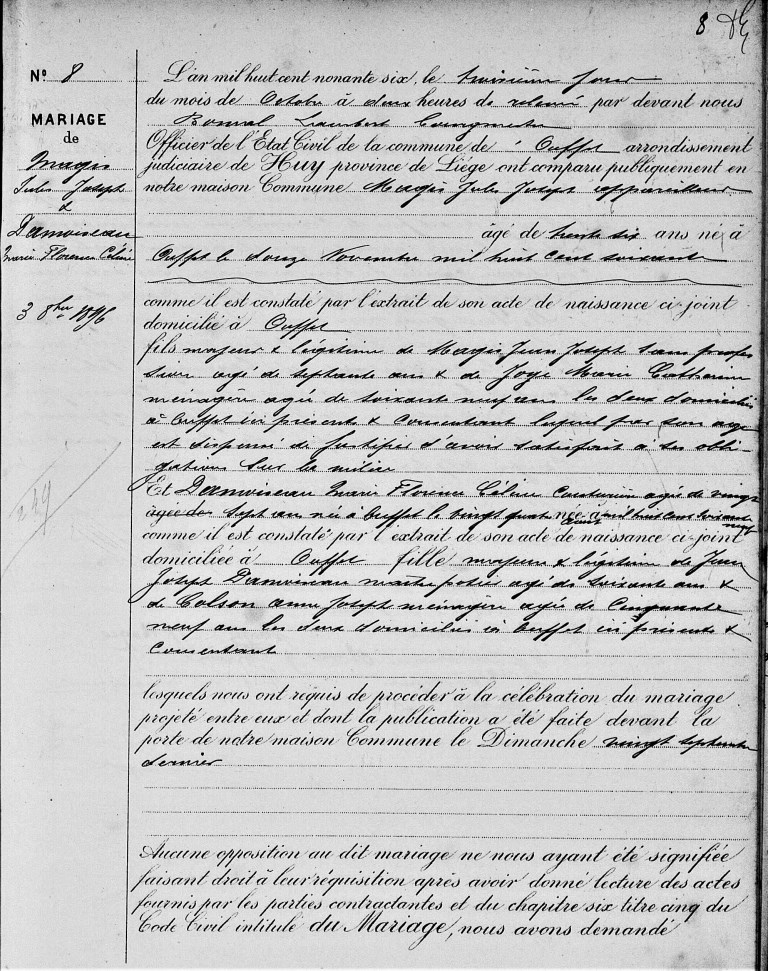 8
Nº 8
MARIAGE
de
Magis
Jules Joseph
&
Damoiseau
Marie Florence Céline
3 8bre 1896
L'an mil huit cent nonante six, le troisième jour
du mois de Octobre à deux heures de relevée par devant nous
Bonval Lambert Bourgmestre
Officier de l'Etat Civil de la commune de Ouffet arrondissement
judiciaire de Huy province de Liége ont comparu publiquement en
notre maison Commune Magis Jules Joseph appareilleur
âgé de trente six ans né à
Ouffet le douze Novembre mil huit cent soixante
comme il est constaté par l'extrait de son acte de naissance ci-joint
domicilié à Ouffet
fils majeur & légitime de Magis Jean Joseph sans profes
sion agé de septante ans & de Joye Marie Catherine
ménagère agée de soixante neuf ans les deux domiciliés
à Ouffet ici présents & consentant lequel par son age
est dispensé de justifier d'avoir satisfait à ses obli
gations sur la milice
Et Damoiseau Marie Florence Céline couturière agée de vingt
âgée de sept ans née à Ouffet le vingt quatre née à août mil huit cent soixante neuf
comme il est constaté par l'extrait de son acte de naissance ci-joint
domiciliée à Ouffet fille majeure & légitime de Jean
Joseph Damoiseau maître potier agé de soixante ans &
de Colson Anne Joseph ménagère agée de Cinquante
neuf ans les deux domiciliés à Ouffet ici présents &
consentant
lesquels nous ont requis de procéder à la célébration du mariage
projeté entre eux et dont la publication a été faite devant la
porte de notre maison Commune le Dimanche vingt septembre
dernier
Aucune opposition au dit mariage ne nous ayant été signifiée
faisant droit à leur réquisition après avoir donné lecture des actes
fournis par les parties contractantes et du chapitre six titre cinq du
Code Civil intitulé du Mariage, nous avons demandé